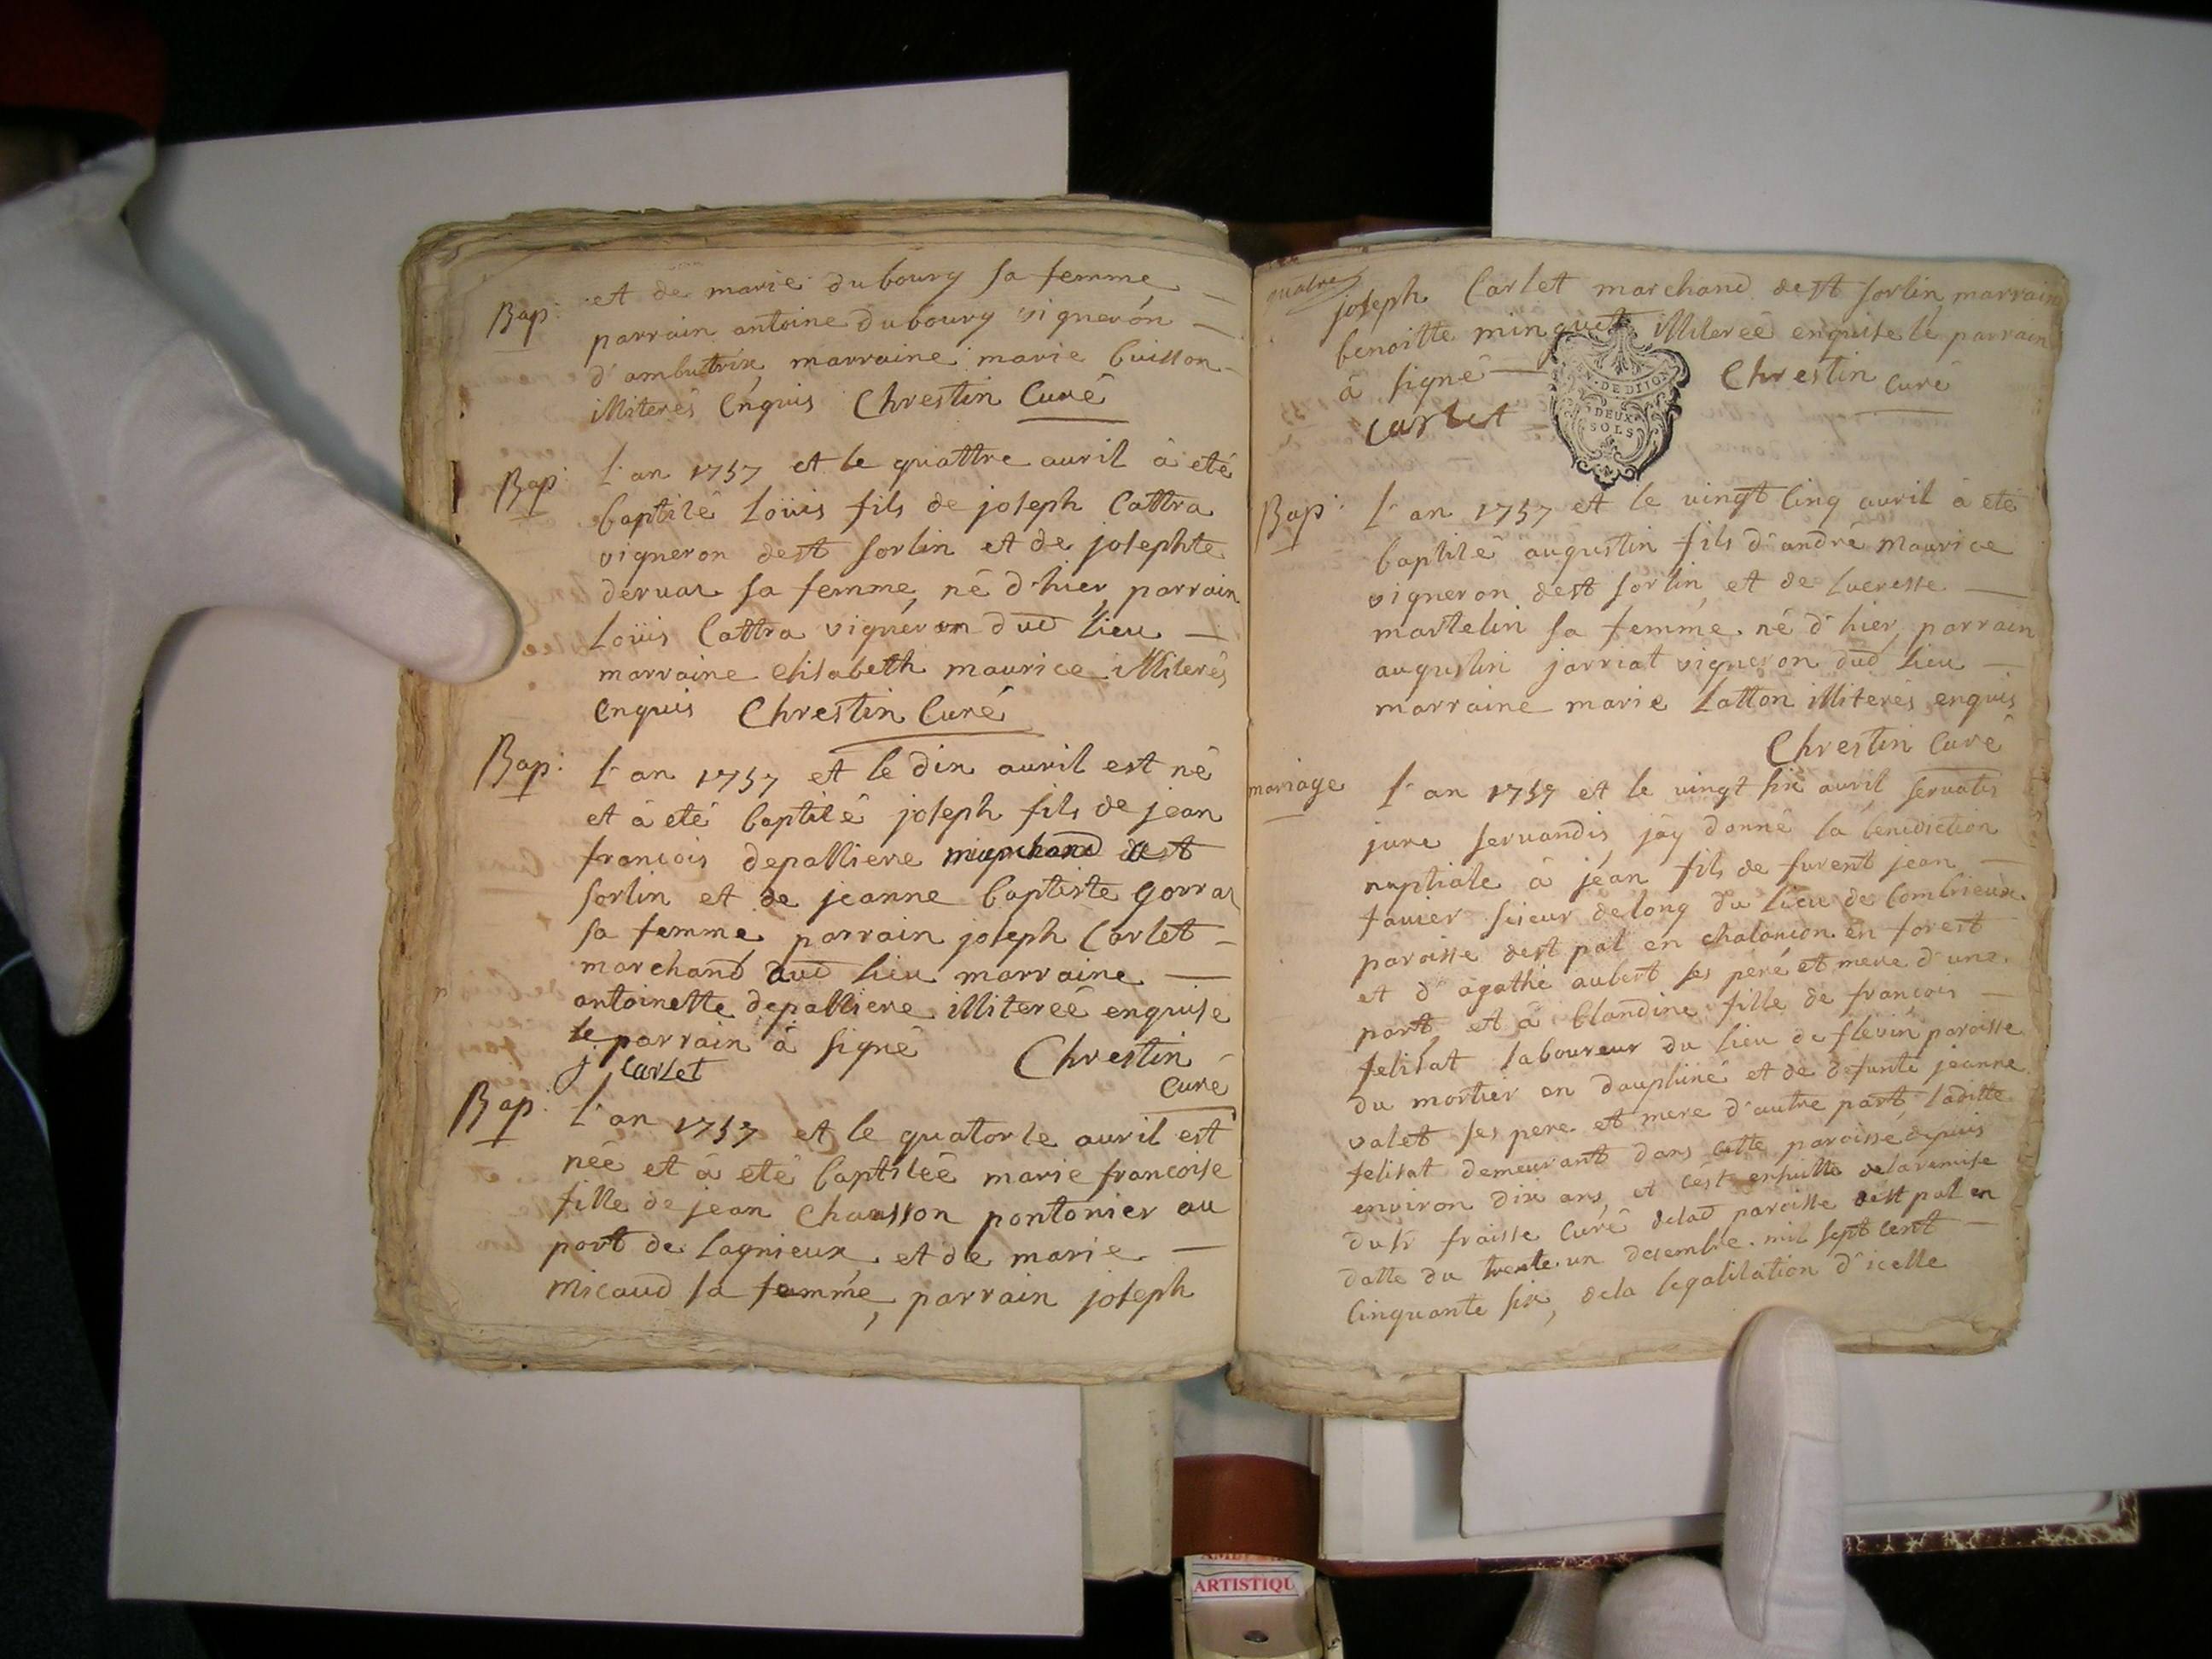 Bap: et de marie dubourg sa femme
parrain antoine dubourg vigneron
d'ambutrix, marraine marie buisson
illiterés enquis Chrestin Curé
Bap: l'an 1757 et le quattre auril à eté
baptisé Loüis fils de joseph Cattra
vigneron de st sorlin et de josephte
deruas sa femme, né d'hier, parrain
Loüis Cattra vigneron dud lieu
marraine elisabeth maurice illiterés
enquis Chrestin Curé
Bap: l'an 1757 et le dix auril est né
et à eté baptisé joseph fils de jean
francois depalliere marchand de st
sorlin et de jeanne baptiste gorras
sa femme parrain joseph Carlet
marchand dud lieu marraine
antoinette depalliere illitereé enquise
le parrain à signé Chrestin
j Carlet curé
Bap: l'an 1757 et le quatorse auril est
neé et à eté baptiseé marie francoise
fille de jean Chausson pontonier au
port de lagnieux, et de marie
micaud sa femme, parrain joseph
quatre
joseph Carlet marchand de st sorlin, marraine
benoitte minguet illitereé enquise le parrain
à signé Chrestin curé
Carlet
EN. DE DIJON
DEUX
SOLS
Bap: l'an 1757 et le vingt cinq auril à eté
baptisé augustin fils d'andré maurice
vigneron de st sorlin, et de lucresse
martelin sa femme né d'hier, parrain
augustin jarriat vigneron dud lieu
marraine marie Latton illiterés enquis
Chrestin Curé
mariage l'an 1757 et le vingt six auril servatis
jure servandis, j'ay donné la benediction
nuptiale à jean fils de furent jean
favier scieur de long du lieu de
paroisse de st pal en chalancon en forest
et d'agathe aubert ses pere et mere d'une
part et à blandine fille de francois
felisat laboureur du lieu de flevin paroisse
du mortier en dauphiné et de defunte jeanne
valet ses pere et mere d'autre part, laditte
felisat demeurant dans cette paroisse depuis
environ dix ans, et c'est ensuitte de la remise
du sr fraisse Curé de lad paroisse de st pal en
datte du trente un decembre mil sept cent
cinquante six, de la legalisation d'icelle
ARTISTIQU